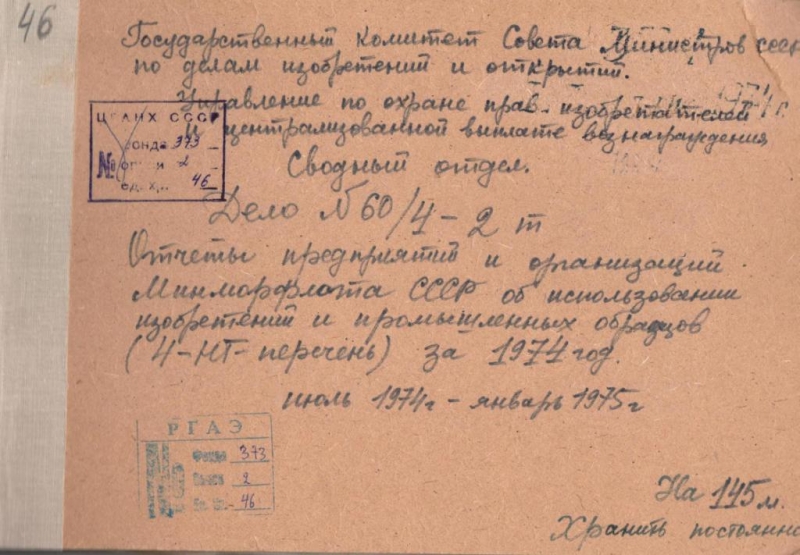 46
Государственный комитет Совета Министров СССР
по делам изобретений и открытий.
Управление по охране прав изобретателей
и централизованной выплате вознаграждения
Сводный отдел.
ЦГАНХ СССР
фонда 373
описи 2
№ ед. хр. 46
Дело № 60/4-2 т
Отчеты предприятий и организаций
Минморфлота СССР об использовании
изобретений и промышленных образцов
(4-НТ-перечень) за 1974 год.
июль 1974г - январь 1975г
РГАЭ
Фонд 373
Опись 2
Ед. хр. 46
На 145 л.
Хранить постоянно